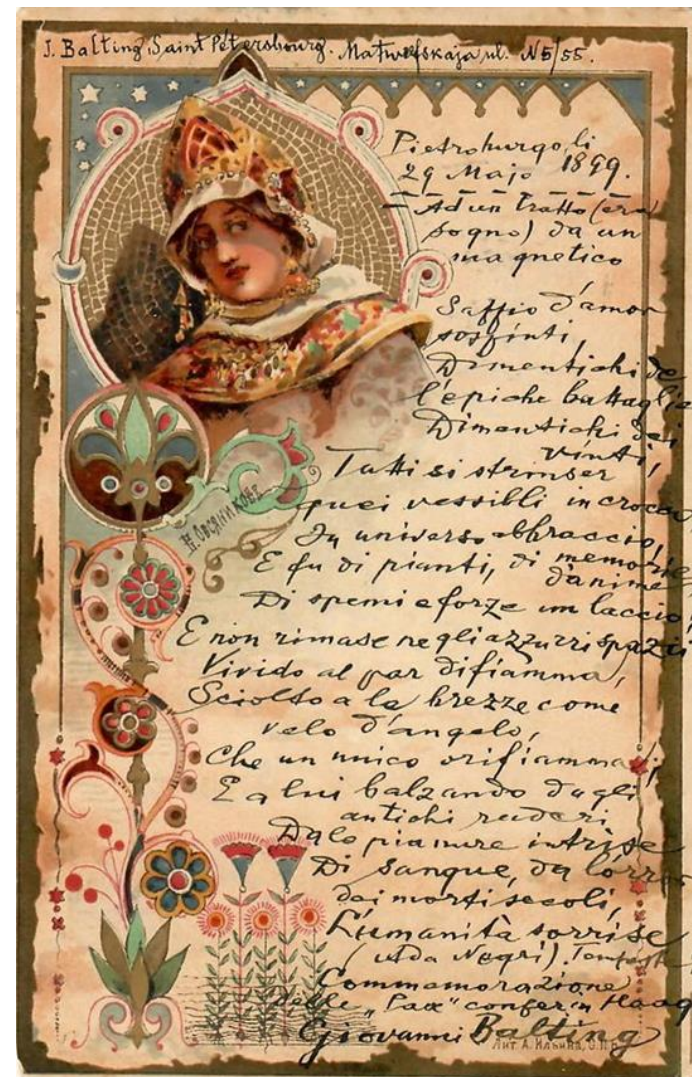 J. Balting, Saint Pétersbourg. Matwejskaja ul. N5/55.
Pietroburgo, li
29 Majo 1899.
Ad un tratto (era
sogno) da un
magnetico
Soffio d'amor
sospinti,
Dimentichi de
l'epiche battaglie
Dimentichi dei
vinti,
Tutti si strinser
quei vessilli in
In universo abbraccio,
E fu di pianti, di memorie
d'anime
Di spemi e forze un laccio;
E non rimase negli azzurri spazii
Vivido al par di fiamma,
Sciolto a le brezze come
velo d'angelo,
Che un unico orifiamma;
E a lui balzando dagli
antichi ruderi
Da le pianure intrise
Di sangue, da l'orror
dei morti secoli,
L'umanità sorrise
(Ada Negri).
Commemorazione
delle „Pax" confer. in Haag
Giovanni Balting
Н. ОВСЯНИКОВЪ
Лит. А. Ильина, С.П.б.